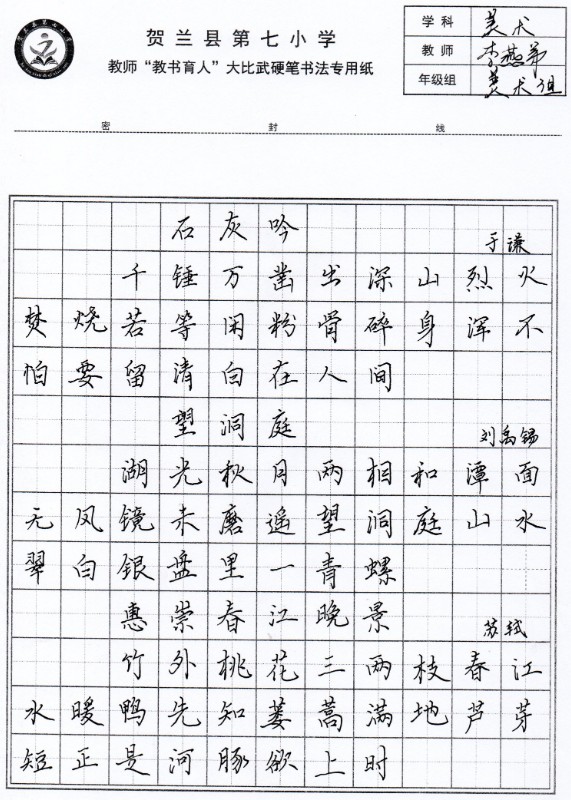 贺兰县第七小学
教师“教书育人”大比武硬笔书法专用纸
学科 美术
教师 李燕弟
年级组 美术组
密 封 线
石灰吟
于谦
千锤万凿出深山烈火
焚烧若等闲粉骨碎身浑不
怕要留清白在人间
望洞庭
刘禹锡
湖光秋月两相和潭面
无风镜未磨遥望洞庭山水
翠白银盘里一青螺
惠崇春江晚景
苏轼
竹外桃花三两枝春江
水暖鸭先知蒌蒿满地芦芽
短正是河豚欲上时